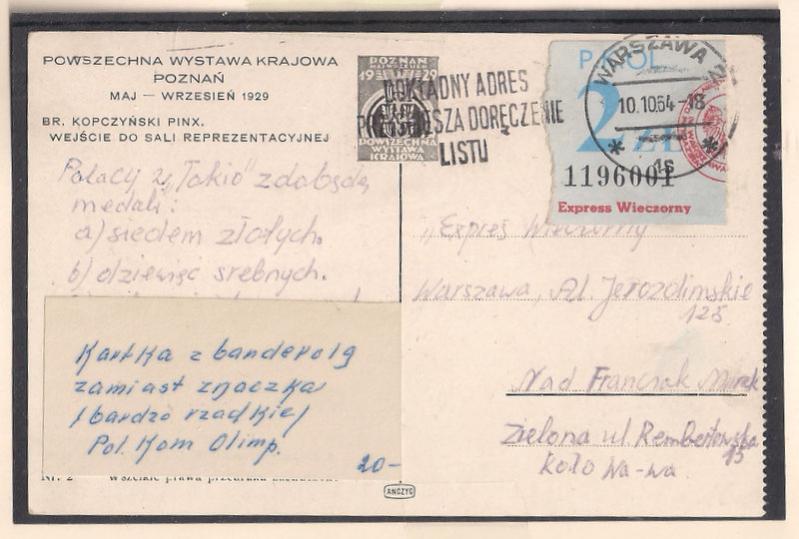 POWSZECHNA WYSTAWA KRAJOWA
POZNAŃ
MAJ — WRZESIEŃ 1929
BR. KOPCZYŃSKI PINX.
WEJŚCIE DO SALI REPREZENTACYJNEJ
POZNAŃ
19 29
POWSZECHNA
WYSTAWA
KRAJOWA
DOKŁADNY ADRES
DORĘCZENIE
LISTU
WARSZAWA 2
10.10.64-18
1s
2 ZŁ
1196001
Express Wieczorny
Polacy z „Tokio" zdobędą
medali:
a) siedem złotych.
b) dziewięć srebnych.
Kartka z banderolą
zamiast znaczka
/bardzo rzadkie/
Pol. Kom Olimp.
20-
„Expres Wieczorny
Warszawa, Al. Jerozolimskie
125
Nad Franczak Marek
Zielona ul. Rembertowska
15
koło Wa-wa.
Nr. 2
AKCZYC